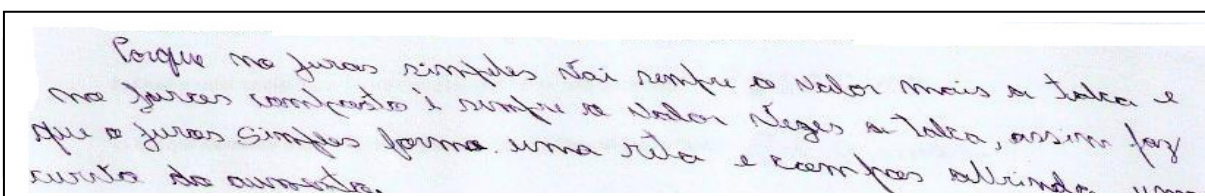 Porque no juros simples vai sempre o valor mais a taxa e
no juros composto é sempre o valor vezes a taxa, assim faz
que o juros simples forma uma reta e
curva do aumento.